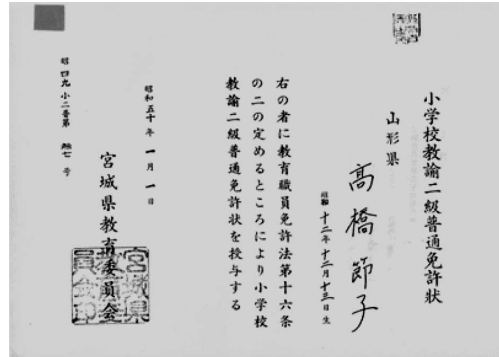 小学校教諭二級普通免許状
山形県
高橋節子
昭和十二年十二月十三日生
右の者に教育職員免許法第十六条
の二の定めるところにより小学校
教諭二級普通免許状を授与する
昭和五十年一月一日
宮城県教育委員会
昭四九小二普第 号
宮城県
教育委
員会印